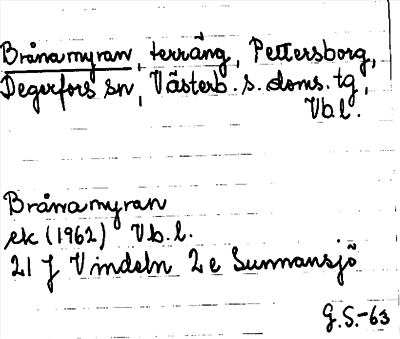 Brånamyran, terräng, Pettersborg,
Degerfors sn, Västerb. s. doms. tg,
Vb l.
Brånamyran
ek (1962) Vb. l.
21 J Vindeln 2 e Sunnansjö
G.S.-63